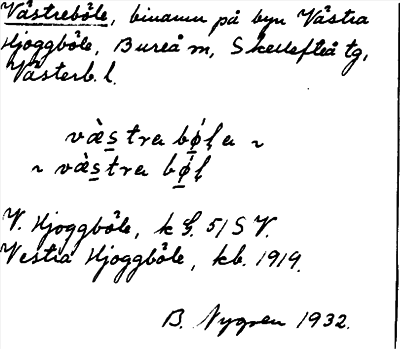 Västreböle, binamn på byn Västra
Hjoggböle, Bureå m, Skellefteå tg,
Västerb. l.
vàstra bǿḷa ~
~ vàstra bǿḷ
V. Hjoggböle, k G. 51 S V.
Vestra Hjoggböle, kb. 1919.
B. Nygren 1932.